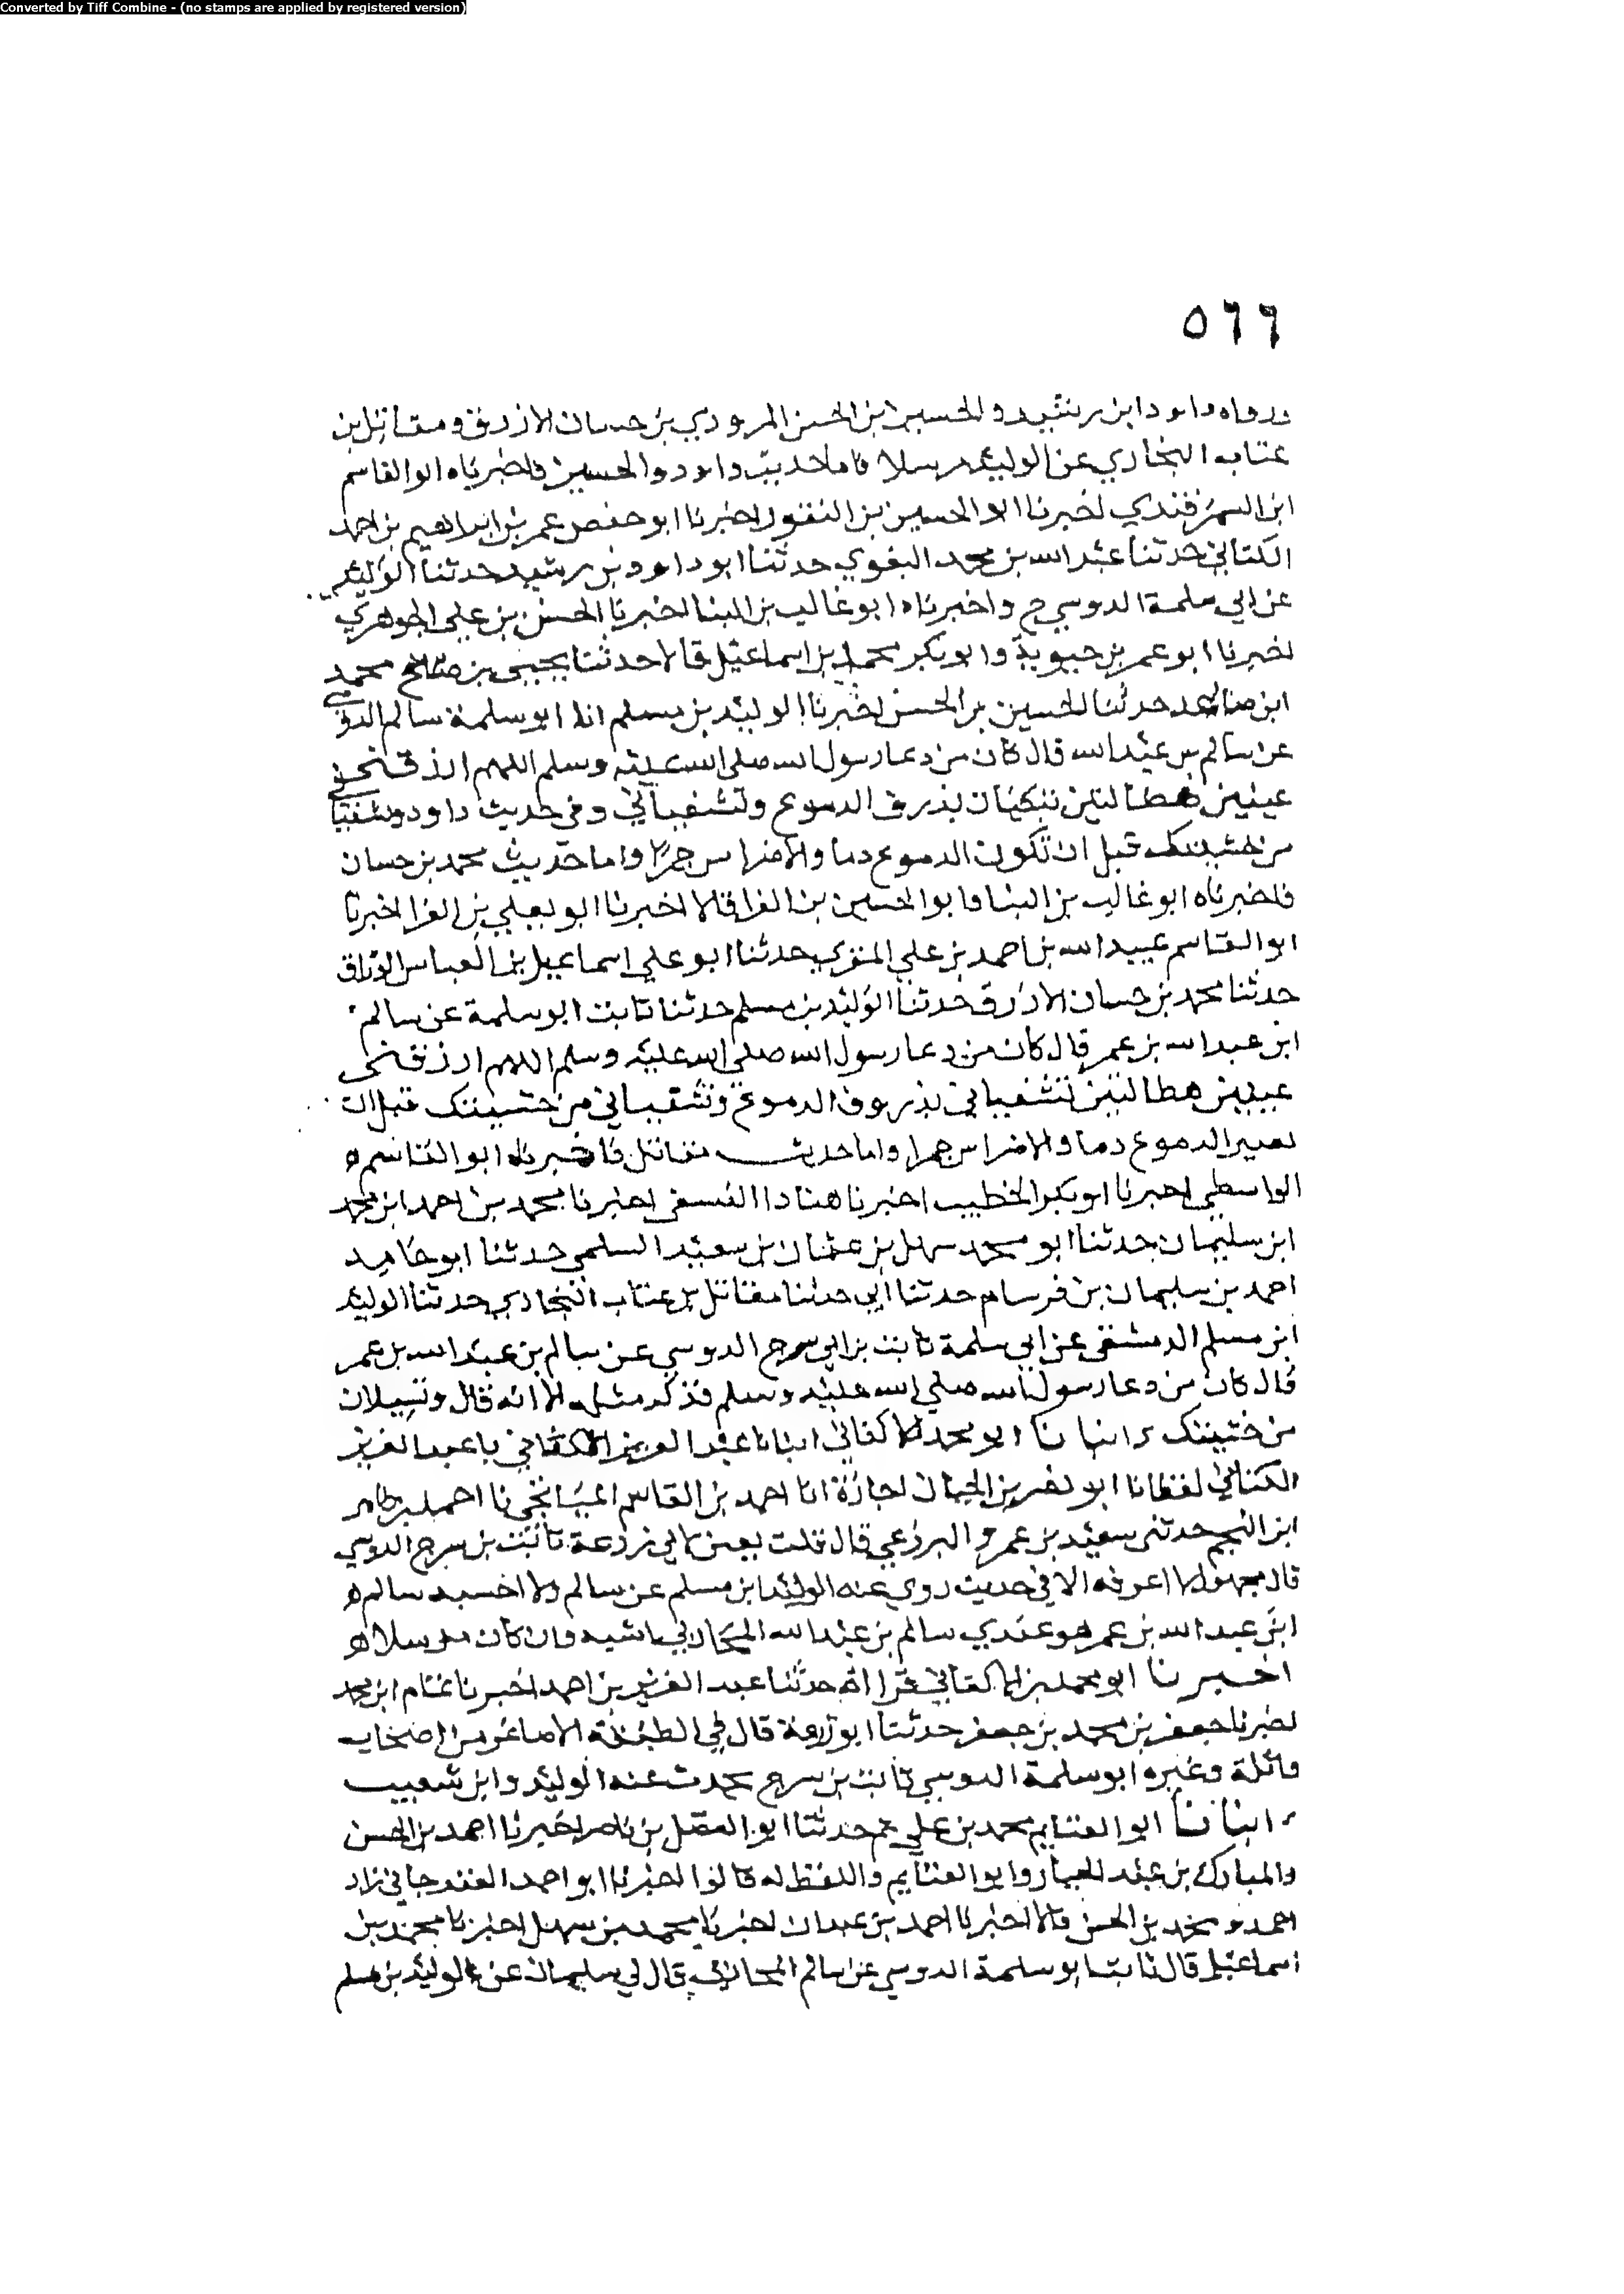 Converted by Tiff Combine - (no stamps are applied by registered version)
٥٦٦
ورواه داود ابن رشيد والحسين ابن الحسن المروذي بن حسان الازرق ومقاتل بن
عتاب البخاري عن الوليد مرسلا فاما حديث داود والحسين فاخبرناه ابو القاسم
ابن السمرقندي اخبرنا ابو الحسين بن النقور اخبرنا ابو حفص عمر بن ابراهيم بن احمد
الكتاني حدثنا عبد الله بن محمد البغوي حدثنا ابو داود بن رشيد حدثنا الوليد
عن ابي سلمة الدوسي ح واخبرناه ابو غالب بن البنا اخبرنا الحسن بن علي الجوهري
اخبرنا ابو عمر بن حيوية وابو بكر محمد بن اسماعيل قالا حدثنا يحيى بن محمد
ابن صاعد حدثنا الحسين بن الحسن اخبرنا الوليد بن مسلم انا ابو سلمة سالم الدوسي
عن سالم بن عبد الله قال كان من دعا رسول الله صلى الله عليه وسلم اللهم ارزقني
عينين هطالتين تبكيان بذرف الدموع وتشفياني وفي حديث داود وتشفيا
من خشيتك قبل ان تكون الدموع دما والاضراس جمرا واما حديث محمد بن حسان
فاخبرناه ابو غالب بن البنا وابو الحسين بن الفرا قالا اخبرنا ابو يعلي بن الفرا اخبرنا
ابو القاسم عبيد الله بن احمد بن علي المقري حدثنا ابو علي اسماعيل بن العباس الوراق
حدثنا محمد بن حسان الازرق حدثنا الوليد بن مسلم حدثنا ثابت ابو سلمة عن سالم
ابن عبد الله بن عمر قال كان من دعا رسول الله صلى الله عليه وسلم اللهم ارزقني
عينين هطالتين تشفياني بذروف الدموع وتشفياني من خشيتك قبل ان
تصير الدموع دما والاضراس جمرا واما حديث مقاتل فاخبرناه ابو القاسم
الواسطي اخبرنا ابو بكر الخطيب اخبرنا هنادا النسفي اخبرنا محمد بن احمد ابن محمد
ابن سليمان حدثنا ابو محمد سهل بن عثمان بن سعيد السلمي حدثنا ابو حامد
احمد بن سليمان بن فرسام حدثنا ابي حدثنا مقاتل بن عتاب البخاري حدثنا الوليد
ابن مسلم الدمشقي عن ابي سلمة ثابت بن ابي سرج الدوسي عن سالم بن عبد الله بن عمر
قال كان من دعا رسول الله صلي الله عليه وسلم فذكر مثله الا انه قال وتسيلان
من خشيتك انبانا ابو محمد الاكفاني انبانا عبد العزيز الاكفاني با عبد العزيز
الكتاني لفظا نا ابو نصر بن الجبان اجازة انا احمد بن القاسم الميانجي نا احمد بن طاهر
ابن النجم حدثني سعيد بن عمرو البرذعي قال قلت يعني لابي زرعة ثابت بن سرج الدوسي
قال مجهول لا اعرفه الا في حديث روي عنه الوليد ابن مسلم عن سالم ولا احسبه سالم
ابن عبد الله بن عمر هو عندي سالم بن عبد الله المحاربي اشبه وان كان مرسلا
اخبرنا ابو محمد بن الاكفاني قراأة حدثنا عبد العزيز بن احمد اخبرنا تمام ابن محمد
اخبرنا جعفر بن محمد بن جعفر حدثنا ابو زرعة قال في الطبقة الاصاغر من اصحاب
واثلة وغيره ابو سلمة الدوسي ثابت بن سرج يحدث عنه الوليد وابن شعيب
انبانا ابو الغنايم محمد بن علي ثم حدثنا ابو الفضل بن ناصر اخبرنا احمد بن الحسن
والمبارك بن عبد الجبار وابو الغنايم واللفظ له قالوا اخبرنا ابو احمد الغندجاني زاد
احمد ومحمد بن الحسن قالا اخبرنا احمد بن عبدان اخبرنا محمد بن سهل اخبرنا محمد بن
اسماعيل قال ثابت ابو سلمة الدوسي عن سالم المحاربي قال لي سليمان عن الوليد بن مسلم